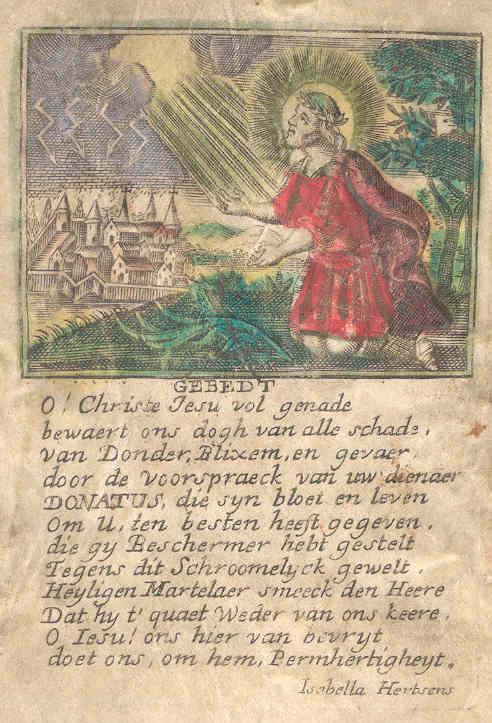 GEBEDT
O! Christe Jesu vol genade
bewaert ons dogh van alle schade,
van Donder, Blixem, en gevaer,
door de voorspraeck van uw dienaer
DONATUS, die syn bloet en leven
Om U, ten besten heeft gegeven,
die gy Beschermer hebt gestelt
Tegens dit Schroomelyck gewelt,
Heyligen Martelaer smeeck den Heere
Dat hy t' quaet Weder van ons keere,
O Iesu! ons hier van bevryt
doet ons, om hem, Permhertigheyt.
Isabella Hertsens